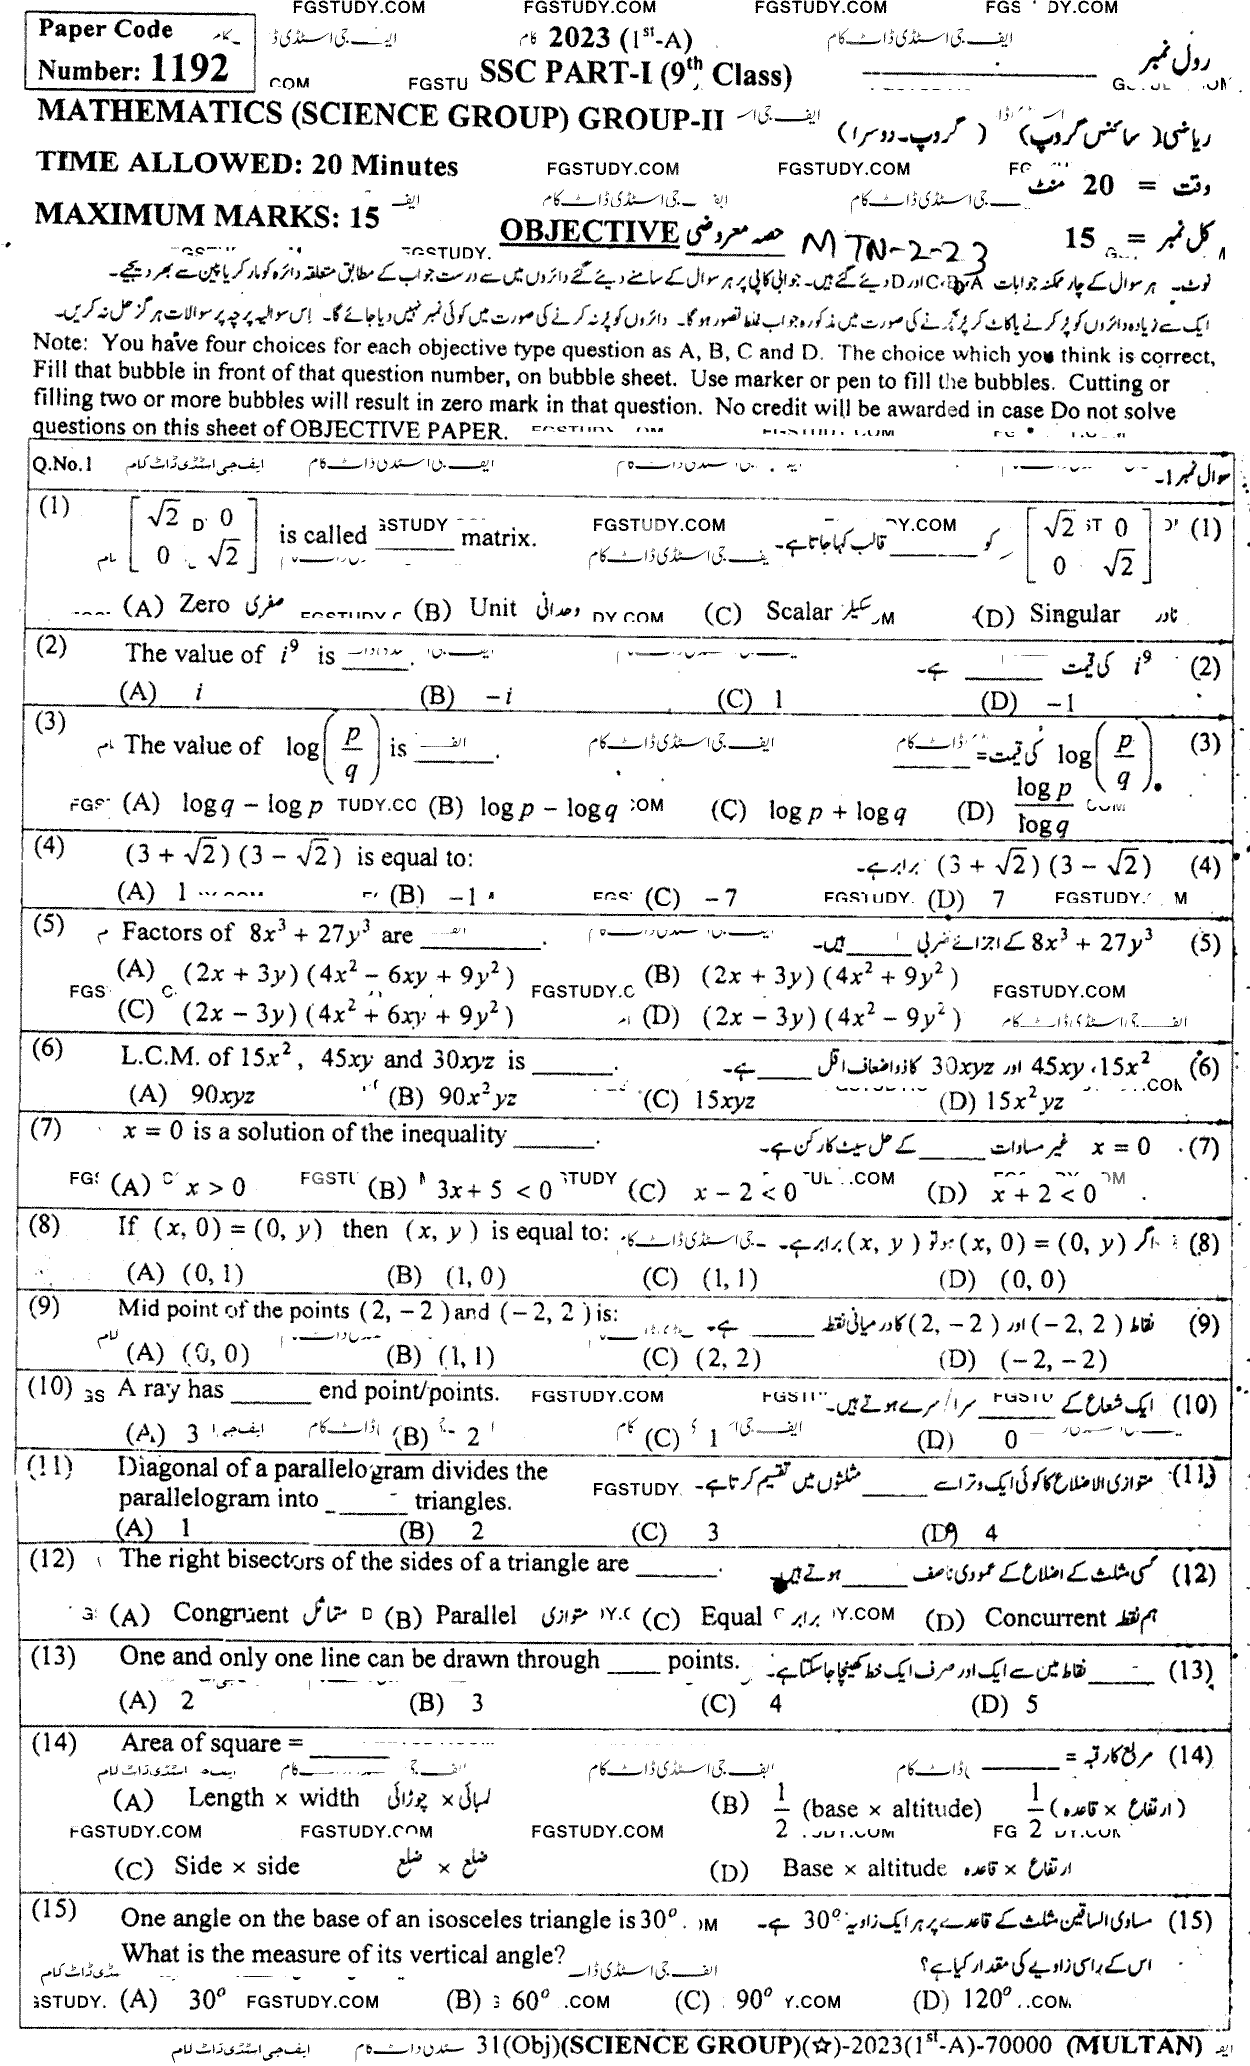 FGSTUDY.COM FGSTUDY.COM FGSTUDY.COM
Paper Code
Number: 1192
2023 (1st-A)
SSC PART-I (9th Class)
رول نمبر
MATHEMATICS (SCIENCE GROUP) GROUP-II
ریاضی (سائنس گروپ) (گروپ۔دوسرا)
TIME ALLOWED: 20 Minutes FGSTUDY.COM FGSTUDY.COM وقت = 20 منٹ
MAXIMUM MARKS: 15 OBJECTIVE حصہ معروضی MTN-2-23 کل نمبر = 15
نوٹ۔ ہر سوال کے چار ممکنہ جوابات A، B، C اور D دیئے گئے ہیں۔ جوابی کاپی پر ہر سوال کے سامنے دیئے گئے دائروں میں سے درست جواب کے مطابق متعلقہ دائرہ کو مارکر یا پین سے بھر دیجیے۔
ایک سے زیادہ دائروں کو پر کرنے یا کاٹ کر پر کرنے کی صورت میں مذکورہ جواب غلط تصور ہوگا۔ دائروں کو پر نہ کرنے کی صورت میں کوئی نمبر نہیں دیا جائے گا۔ اِس سوالیہ پرچہ پر سوالات ہرگز حل نہ کریں۔
Note: You have four choices for each objective type question as A, B, C and D. The choice which you think is correct,
Fill that bubble in front of that question number, on bubble sheet. Use marker or pen to fill the bubbles. Cutting or
filling two or more bubbles will result in zero mark in that question. No credit will be awarded in case Do not solve
questions on this sheet of OBJECTIVE PAPER.
Q.No.1 سوال نمبر 1۔
(1) [√2 0; 0 √2] is called ______ matrix. [√2 0; 0 √2] کو ______ قالب کہا جاتا ہے۔ (1)
(A) Zero صفری (B) Unit وحدانی (C) Scalar سکیلر (D) Singular نادر
(2) The value of i⁹ is ______. i⁹ کی قیمت ______ ہے۔ (2)
(A) i (B) −i (C) 1 (D) −1
(3) The value of log(p/q) is ______. log(p/q) کی قیمت= ______ (3)
(A) log q − log p (B) log p − log q (C) log p + log q (D) log p / log q
(4) (3 + √2) (3 − √2) is equal to: (3 + √2) (3 − √2) برابر ہے۔ (4)
(A) 1 (B) −1 (C) −7 (D) 7
(5) Factors of 8x³ + 27y³ are ______. 8x³ + 27y³ کے اجزائے ضربی ____ ہیں۔ (5)
(A) (2x + 3y) (4x² − 6xy + 9y²) (B) (2x + 3y) (4x² + 9y²)
(C) (2x − 3y) (4x² + 6xy + 9y²) (D) (2x − 3y) (4x² − 9y²)
(6) L.C.M. of 15x², 45xy and 30xyz is ______. 15x²، 45xy اور 30xyz کا ذواضعاف اقل ____ ہے۔ (6)
(A) 90xyz (B) 90x²yz (C) 15xyz (D) 15x²yz
(7) x = 0 is a solution of the inequality ______. x = 0 غیر مساوات ____ کے حل سیٹ کا رکن ہے۔ (7)
(A) x > 0 (B) 3x + 5 < 0 (C) x − 2 < 0 (D) x + 2 < 0
(8) If (x, 0) = (0, y) then (x, y) is equal to: اگر (x, 0) = (0, y) ہو تو (x, y) برابر ہے۔ (8)
(A) (0, 1) (B) (1, 0) (C) (1, 1) (D) (0, 0)
(9) Mid point of the points (2, −2) and (−2, 2) is: نقاط (−2, 2) اور (2, −2) کا درمیانی نقطہ ____ ہے۔ (9)
(A) (0, 0) (B) (1, 1) (C) (2, 2) (D) (−2, −2)
(10) A ray has ______ end point/points. FGSTUDY.COM ایک شعاع کے ______ سرا/سرے ہوتے ہیں۔ (10)
(A) 3 (B) 2 (C) 1 (D) 0
(11) Diagonal of a parallelogram divides the متوازی الاضلاع کا کوئی ایک وتر اسے ____ مثلثوں میں تقسیم کرتا ہے۔ (11)
parallelogram into ______ triangles.
(A) 1 (B) 2 (C) 3 (D) 4
(12) The right bisectors of the sides of a triangle are ______. کسی مثلث کے اضلاع کے عمودی ناصف ____ ہوتے ہیں۔ (12)
(A) Congruent متماثل (B) Parallel متوازی (C) Equal برابر (D) Concurrent ہم نقطہ
(13) One and only one line can be drawn through ____ points. ____ نقاط میں سے ایک اور صرف ایک خط کھینچا جا سکتا ہے۔ (13)
(A) 2 (B) 3 (C) 4 (D) 5
(14) Area of square = ______ مربع کا رقبہ = ______ (14)
(A) Length × width لمبائی × چوڑائی (B) 1/2 (base × altitude) 1/2 (ارتفاع × قاعدہ)
FGSTUDY.COM FGSTUDY.COM FGSTUDY.COM
(C) Side × side ضلع × ضلع (D) Base × altitude ارتفاع × قاعدہ
(15) One angle on the base of an isosceles triangle is 30°. مساوی الساقین مثلث کے قاعدے پر ہر ایک زاویہ 30° ہے۔ (15)
What is the measure of its vertical angle? اس کے راسی زاویے کی مقدار کیا ہے؟
(A) 30° FGSTUDY.COM (B) 60° (C) 90° (D) 120°
31(Obj)(SCIENCE GROUP)(☆)-2023(1st-A)-70000 (MULTAN)